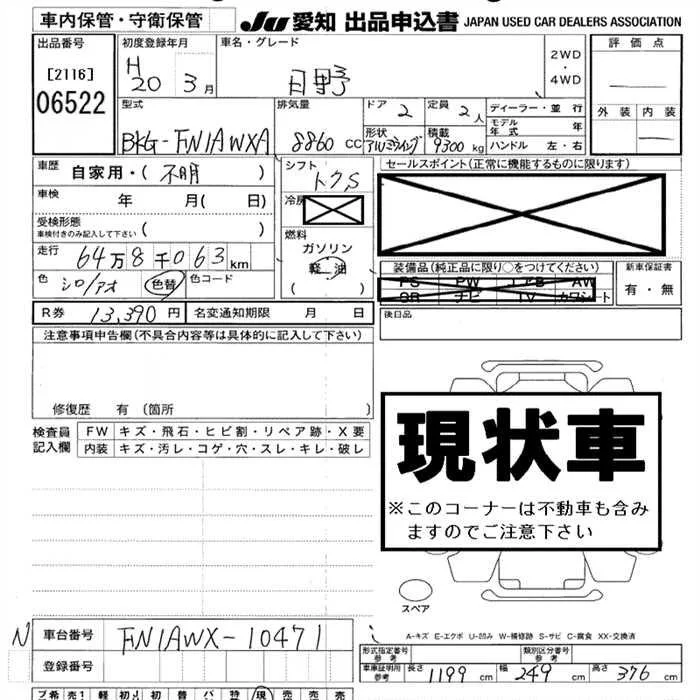 車内保管・守衛保管
JU 愛知 出品申込書 JAPAN USED CAR DEALERS ASSOCIATION
出品番号
[2116]
06522
初度登録年月
H 20 3 月
車名・グレード
日野
2WD
・
4WD
評価点
外装 内装
型式
BKG-FN1AWXA
排気量
8860 CC
ドア 2
定員 2 人
形状
アルミウイング
積載
9300 kg
ディーラー・並行
モデル年式 年
ハンドル 左・右
車歴
自家用・(不明)
車検 年 月( 日)
受検形態
車検付きのみ記入して下さい ( )
走行 64万8千063 km
色 シロ/アオ 色替 色コード
シフト
トクS
冷房
燃料
ガソリン
軽油
セールスポイント(正常に機能するものに限ります)
装備品(純正品に限り○をつけてください)
PS PW エアB AW
SR ナビ TV カワシート
新車保証書
有・無
R券 13,390 円 名変通知期限 月 日
後日品
注意事項申告欄(不具合内容等は具体的に記入して下さい)
修復歴 有 (箇所 )
検査員
記入欄
FW キズ・飛石・ヒビ割・リペア跡・X要
内装 キズ・汚レ・コゲ・穴・スレ・キレ・破レ
現状車
※このコーナーは不動車も含み
ますのでご注意下さい
スペア
A-キズ E-エクボ U-凹み W-補修跡 S-サビ C-腐食 XX-交換済
N 車台番号 FN1AWX-10471
登録番号
形式指定番号
参考
類別区分番号
参考
車庫証明用
参考
長さ 1199 cm 幅 249 cm 高さ 376 cm